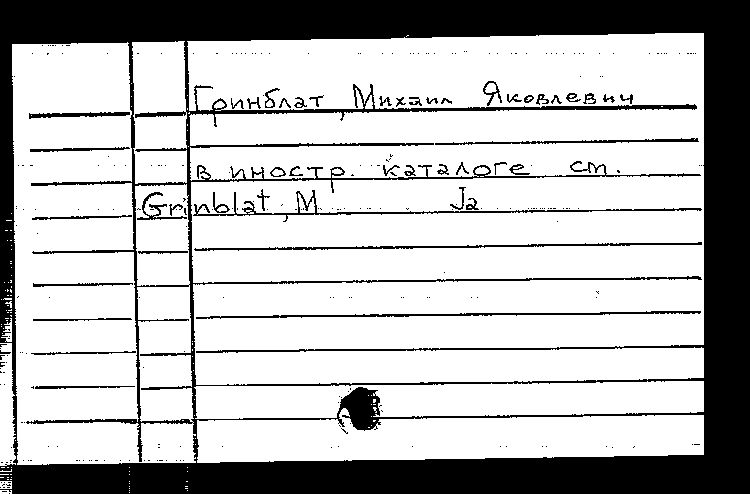 Гринблат, Михаил Яковлевич
в иностр. каталоге см.
Grinblat, M Ja